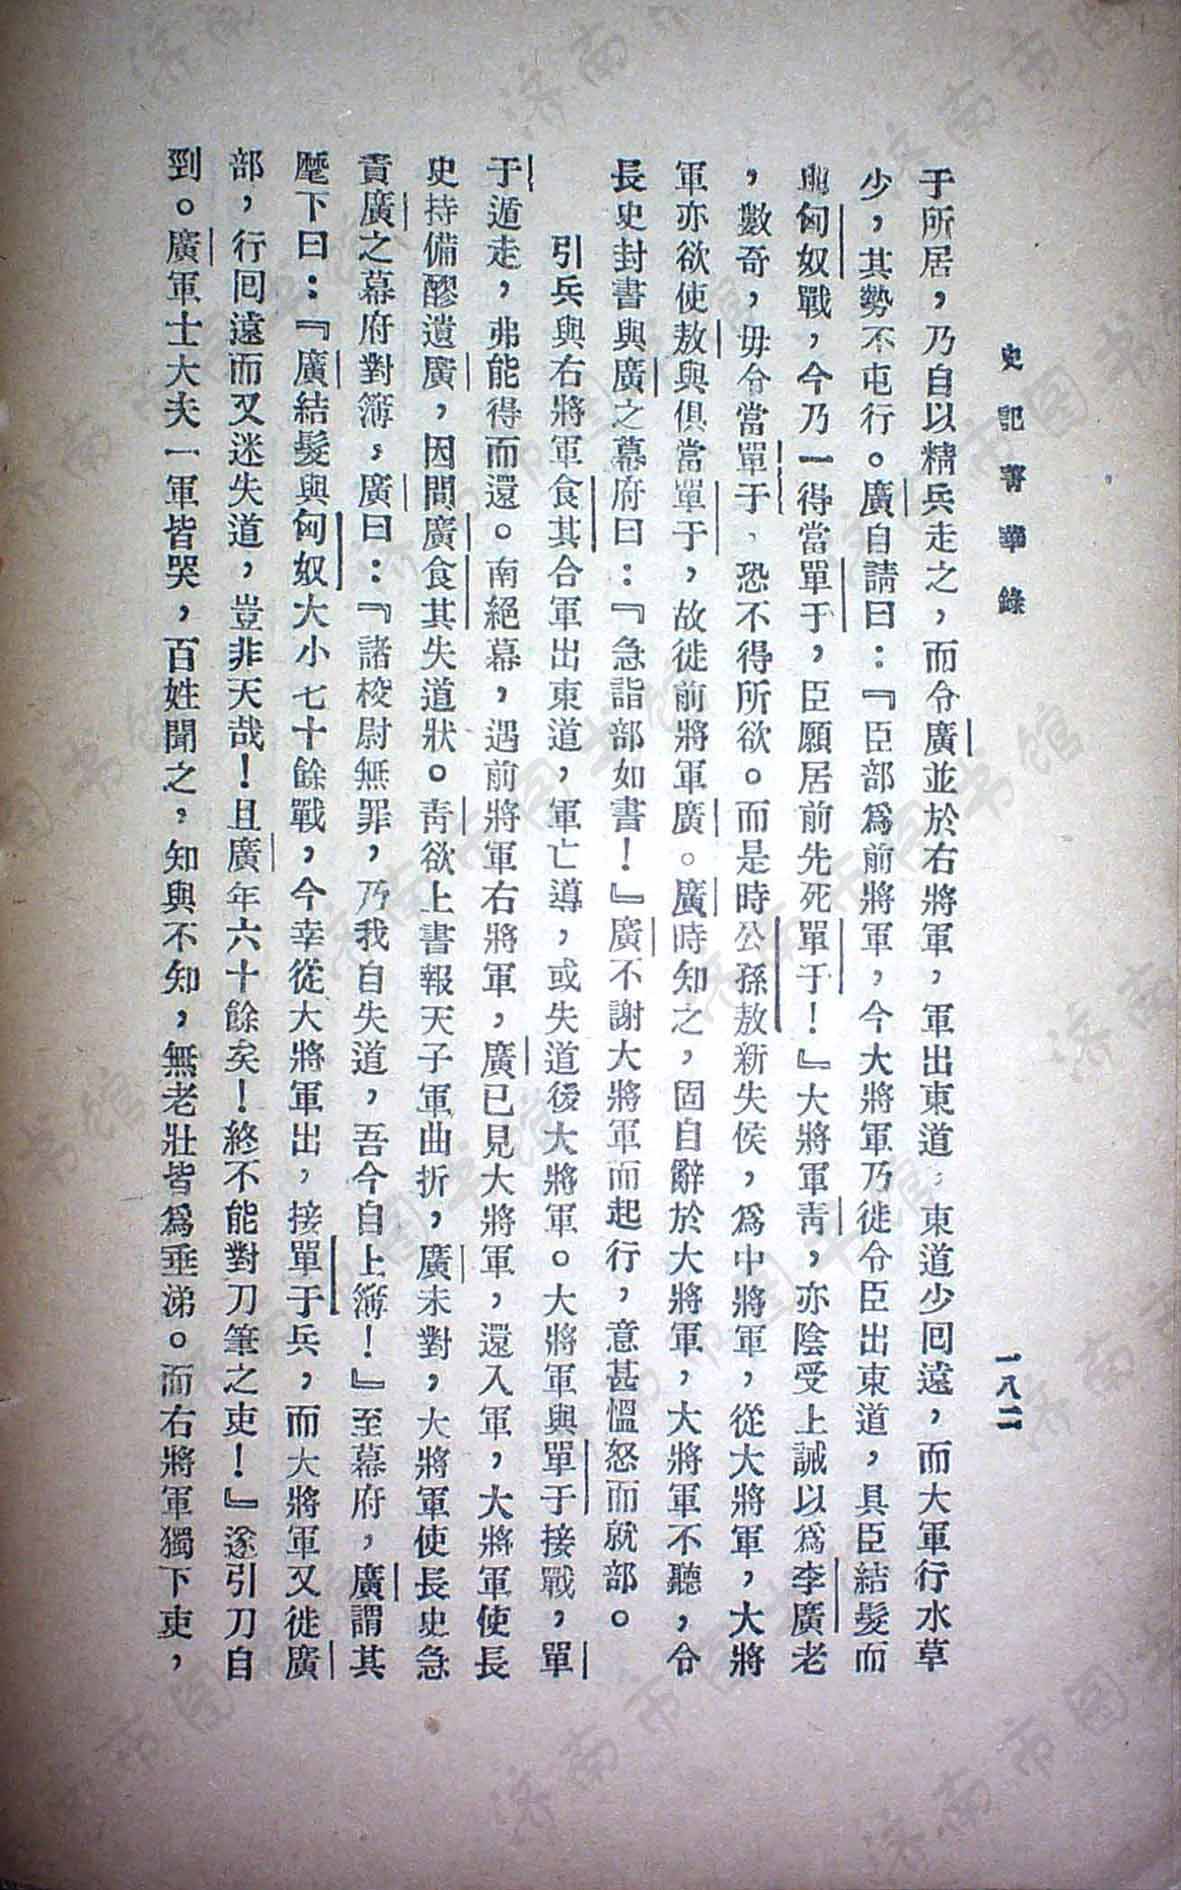 史記菁華錄
一八二
于所居，乃自以精兵走之，而令廣並於右將軍，軍出東道；東道少回遠，而大軍行水草
少，其勢不屯行。廣自請曰：『臣部爲前將軍，今大將軍乃徙令臣出東道，具臣結髮而
與匈奴戰，今乃一得當單于，臣願居前先死單于！』大將軍靑，亦陰受上誡以爲李廣老
，數奇，毋令當單于，恐不得所欲。而是時公孫敖新失侯，爲中將軍，從大將軍，大將
軍亦欲使敖與俱當單于，故徙前將軍廣。廣時知之，固自辭於大將軍，大將軍不聽，令
長史封書與廣之幕府曰：『急詣部如書！』廣不謝大將軍而起行，意甚慍怒而就部。
引兵與右將軍食其合軍出東道，軍亡導，或失道後大將軍。大將軍與單于接戰，單
于遁走，弗能得而還。南絕幕，遇前將軍右將軍，廣已見大將軍，還入軍，大將軍使長
史持備醪遺廣，因問廣食其失道狀。靑欲上書報天子軍曲折，廣未對，大將軍使長史急
責廣之幕府對簿，廣曰：『諸校尉無罪，乃我自失道，吾今自上簿！』至幕府，廣謂其
麾下曰：『廣結髮與匈奴大小七十餘戰，今幸從大將軍出，接單于兵，而大將軍又徙廣
部，行回遠而又迷失道，豈非天哉！且廣年六十餘矣！終不能對刀筆之吏！』遂引刀自
剄。廣軍士大夫一軍皆哭，百姓聞之，知與不知，無老壯皆爲垂涕。而右將軍獨下吏，
济南市图书馆